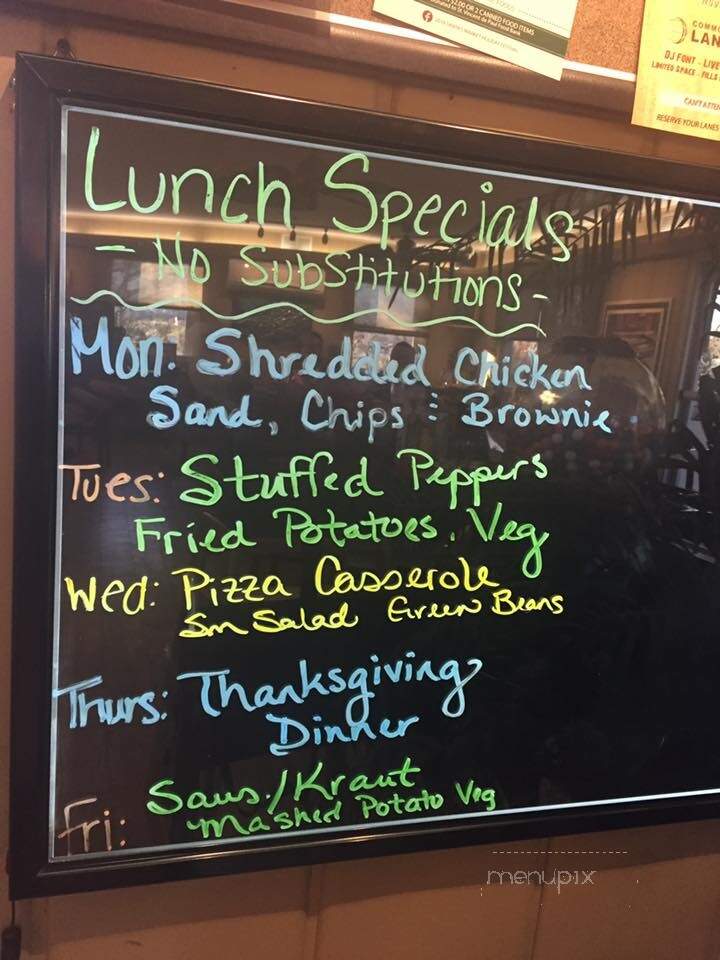 $2.00 OR 2 CANNED FOOD ITEMS
donated to St. Vincent de Paul Food Bank
COMMO
LAN
DJ FONT - LIVE
LIMITED SPACE - FILLS
CAN'T ATTEN
RESERVE YOUR LANES
Lunch Specials
- No Substitutions -
Mon. Shredded Chicken
Sand, Chips : Brownie
Tues: Stuffed Peppers
Fried Potatoes. Veg
Wed: Pizza Casserole
Sm Salad Green Beans
Thurs: Thanksgiving
Dinner
Fri: Saus./Kraut
Mashed Potato Veg
menupix